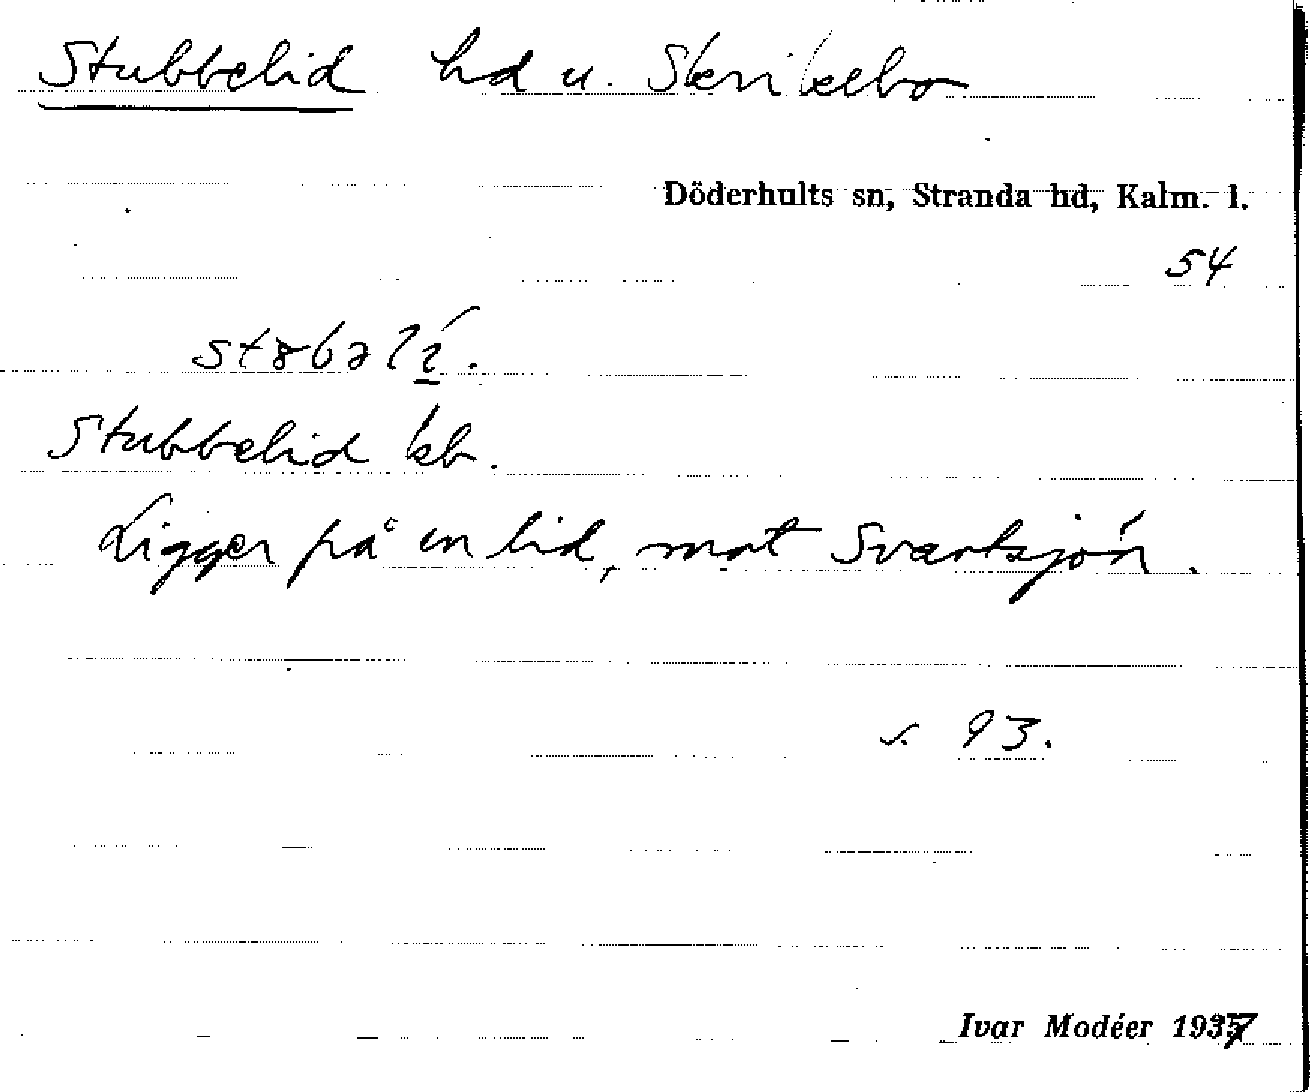 Stubbelid hd u. Skrikebo
Döderhults sn, Stranda hd, Kalm. l.
54
Stubbelid kb.
Ligger på en lid, mot Svartsjön.
s. 93.
Ivar Modéer 1937